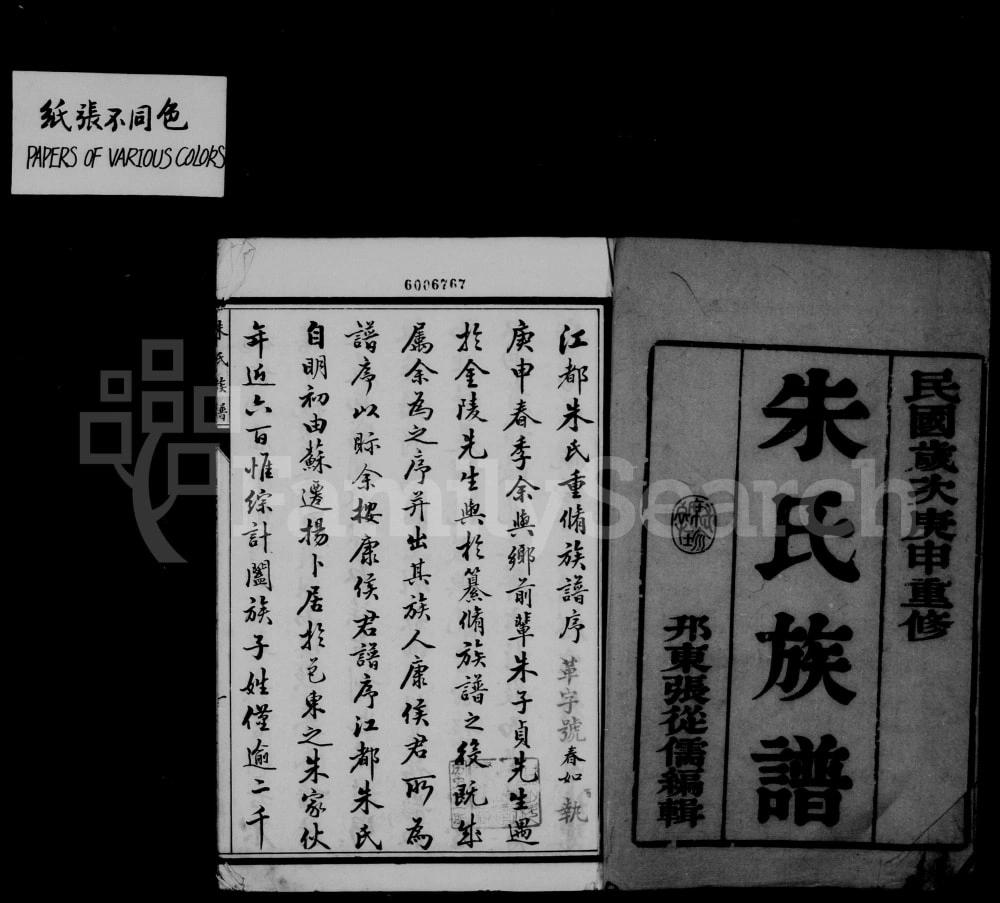 紙張不同色
PAPERS OF VARIOUS COLORS
民國歲次庚申重修
朱氏族譜
邗東張從儒編輯
6006767
江都朱氏重脩族譜序 革字號 春如 執
庚申春季余與鄉前輩朱子貞先生遇
於金陵先生與於纂脩族譜之役既成
属余為之序并出其族人康侯君所為
譜序以眎余按康侯君譜序江都朱氏
自明初由蘇遷揚卜居於邑東之朱家伙
年近六百惟綜計闔族子姓僅逾二千
朱氏族譜
一
FamilySearch